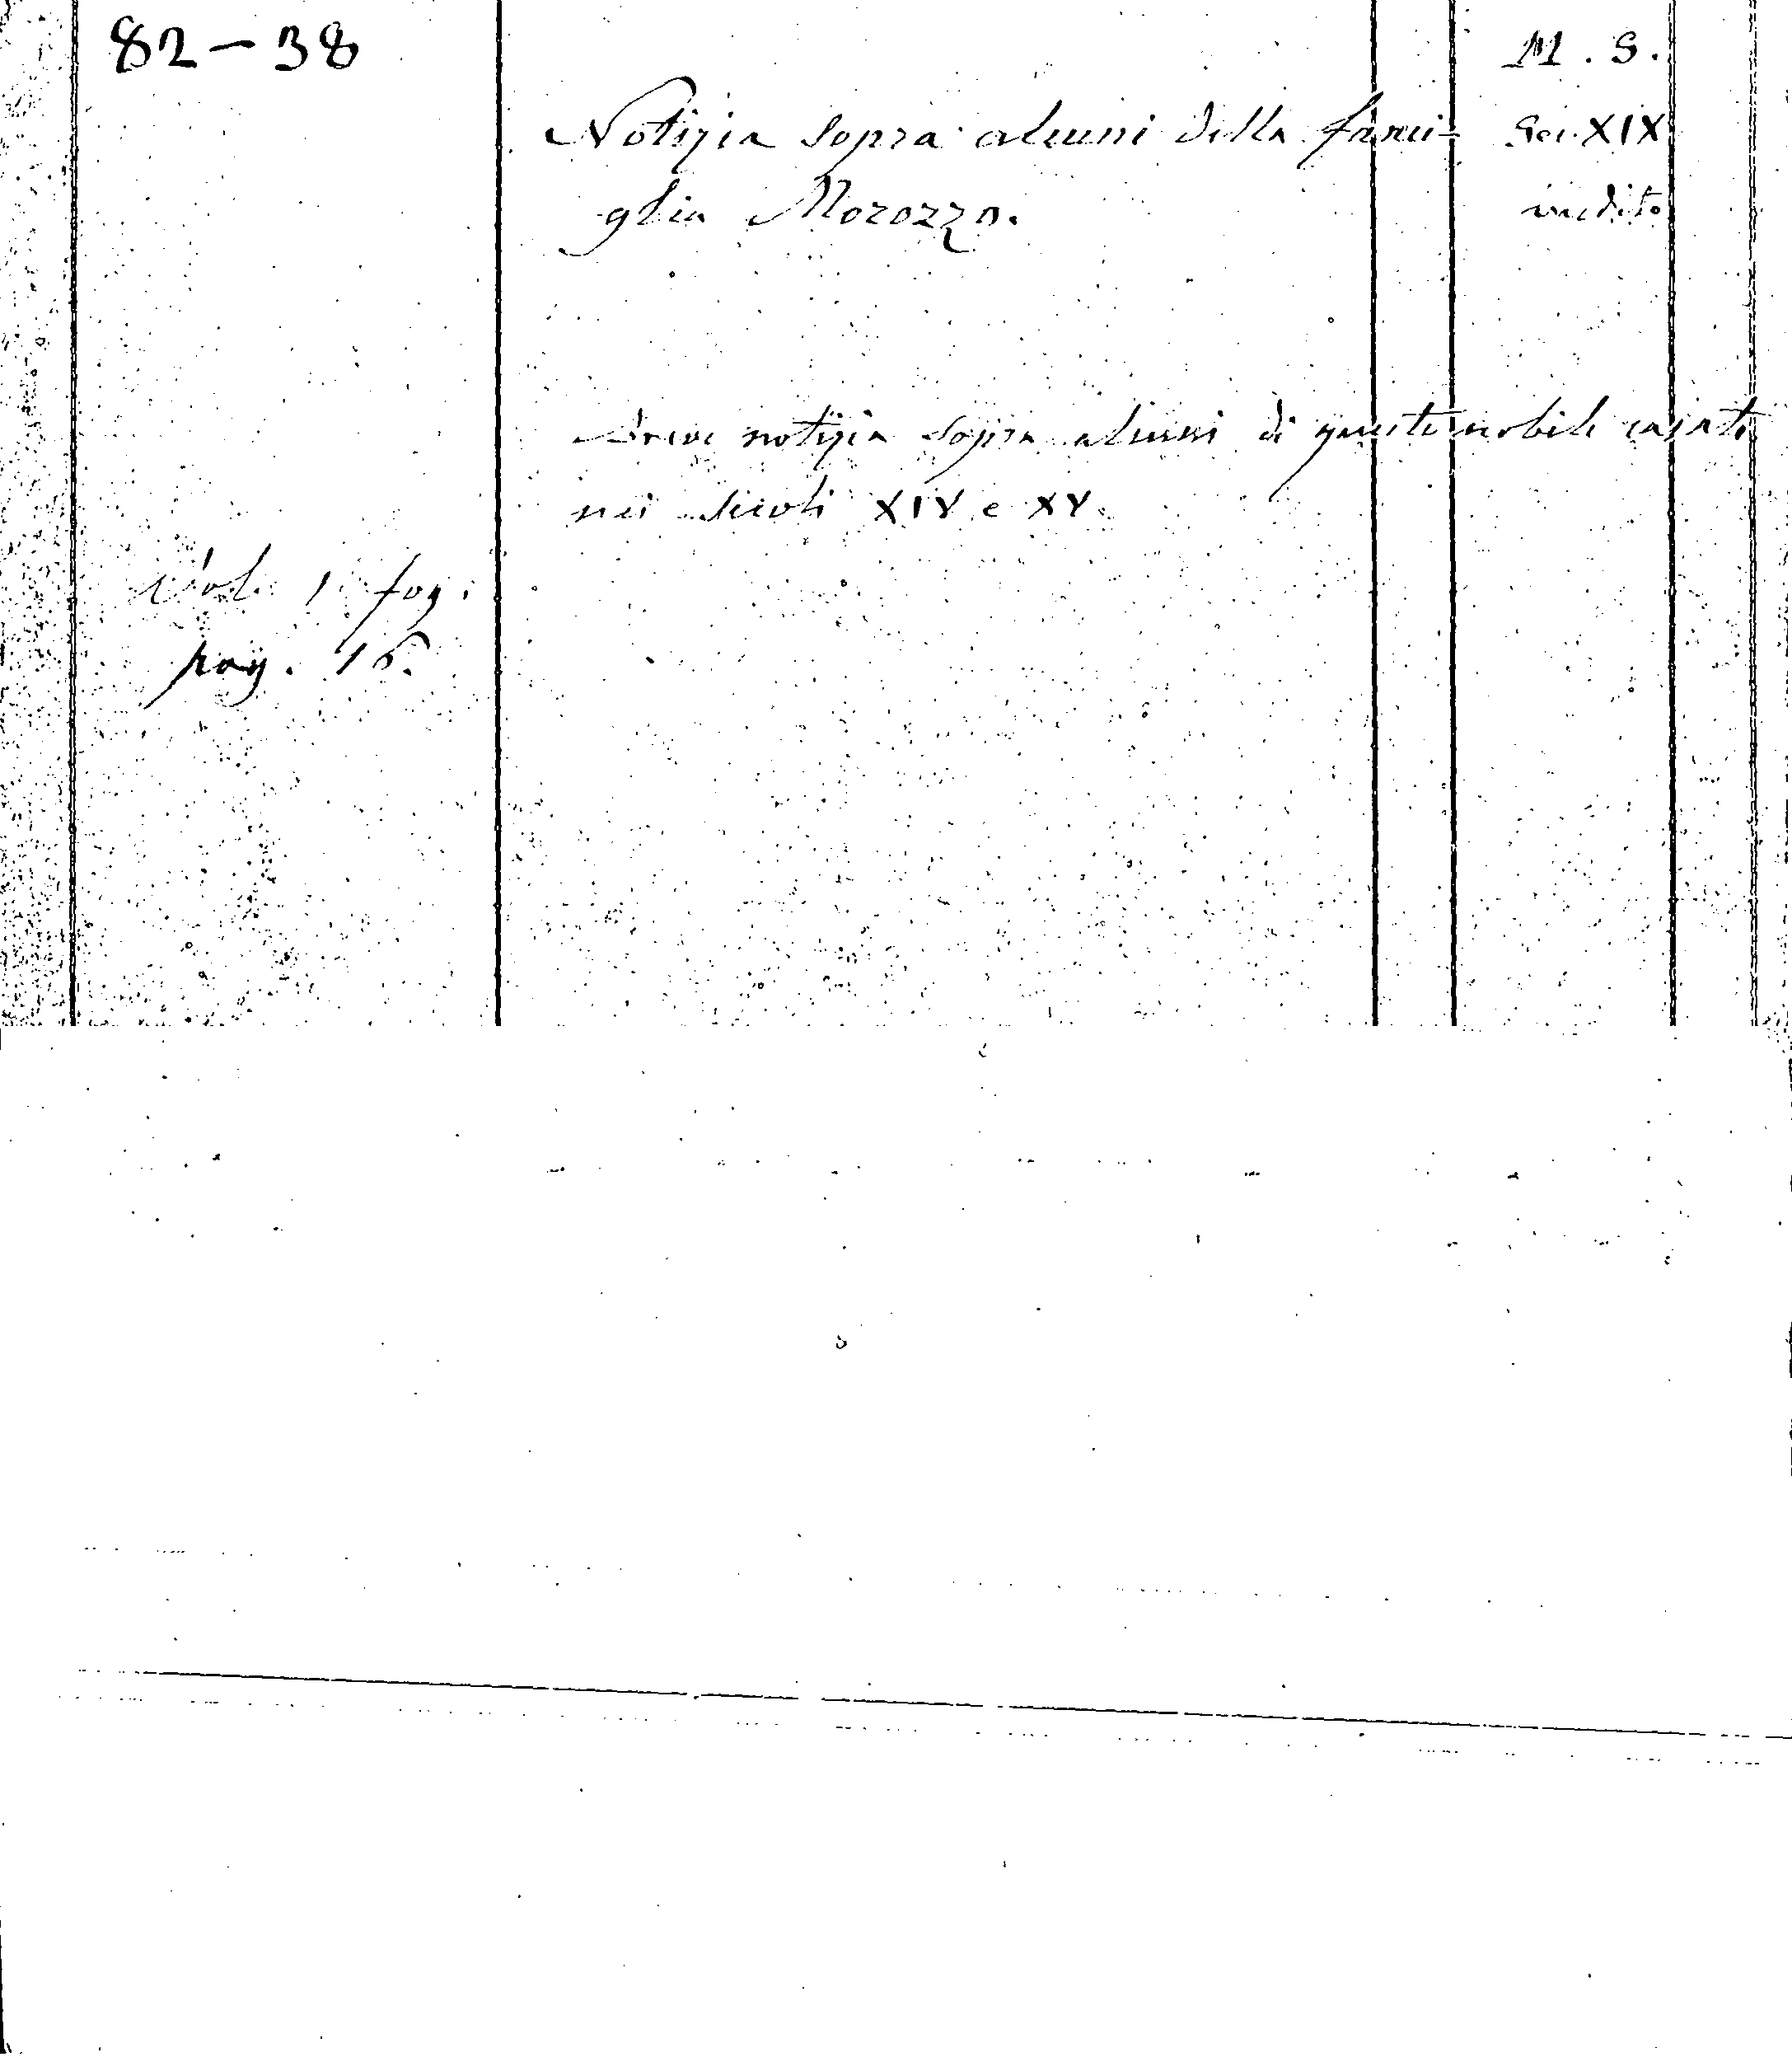 82-38
M. S.
Notizia sopra alcuni della fami-
Sec. XIX
glia Morozzo.
inedito
Breve notizia sopra alcuni di questo nobile casato
nei secoli XIV e XV.
Vol. 1. fog.
pag. 16.